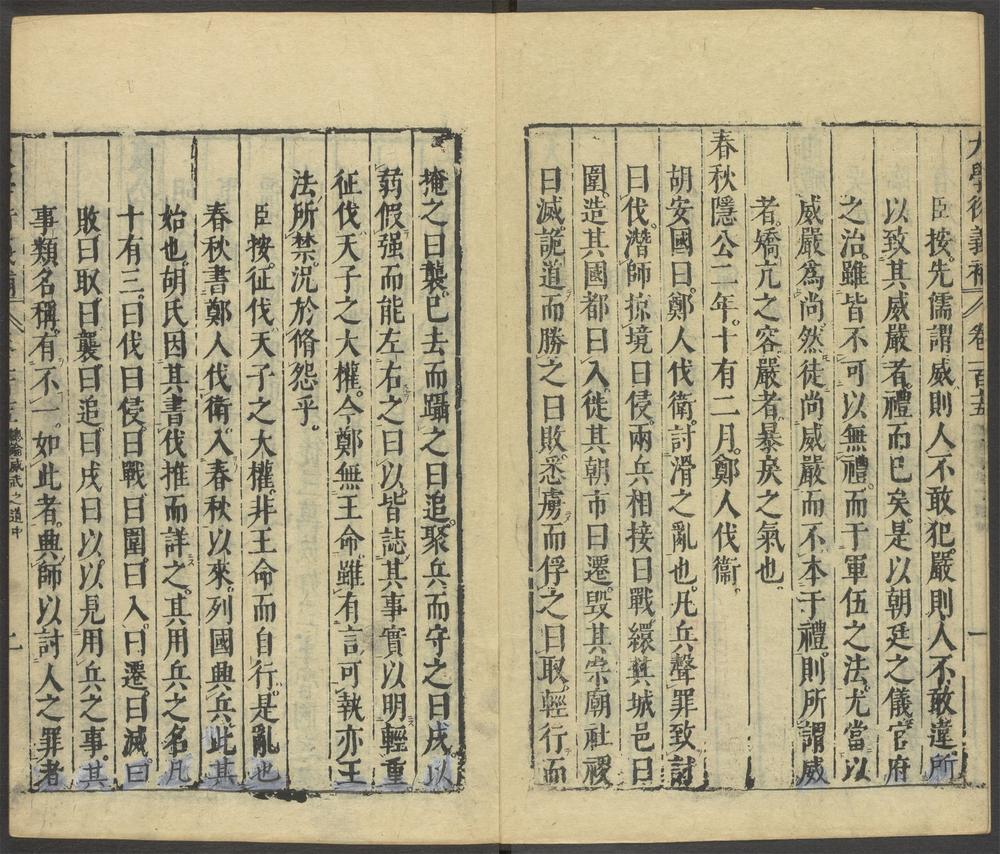 大學衍義補 卷一百十五 一
臣按先儒謂威則人不敢犯嚴則人不敢違所
以致其威嚴者禮而已矣是以朝廷之儀官府
之治雖皆不可以無禮而于軍伍之法尤當以
威嚴爲尚然徒尚威嚴而不本于禮則所謂威
者矯亢之容嚴者暴戾之氣也
春秋隱公二年十有二月鄭人伐衞
胡安國曰鄭人伐衛討滑之亂也凡兵聲罪致討
曰伐潛師掠境曰侵兩兵相接曰戰繯其城邑曰
圍造其國都曰入徙其朝市曰遷毀其宗廟社稷
曰滅詭道而勝之曰敗悉虜而俘之曰取輕行而
掩之曰襲已去而躡之曰追聚兵而守之曰戍以
弱假强而能左右之曰以皆誌其事實以明輕重
征伐天子之大權今鄭無王命雖有言可執亦王
法所禁況於脩怨乎
臣按征伐天子之大權非王命而自行是亂也
春秋書鄭人伐衛入春秋以來列國興兵此其
始也胡氏因其書伐推而詳之其用兵之名凡
十有三曰伐曰侵曰戰曰圍曰入曰遷曰滅曰
敗曰取曰襲曰追曰戍曰以以見用兵之事其
事類名稱有不一如此者興師以討人之罪者
總論威武之道中